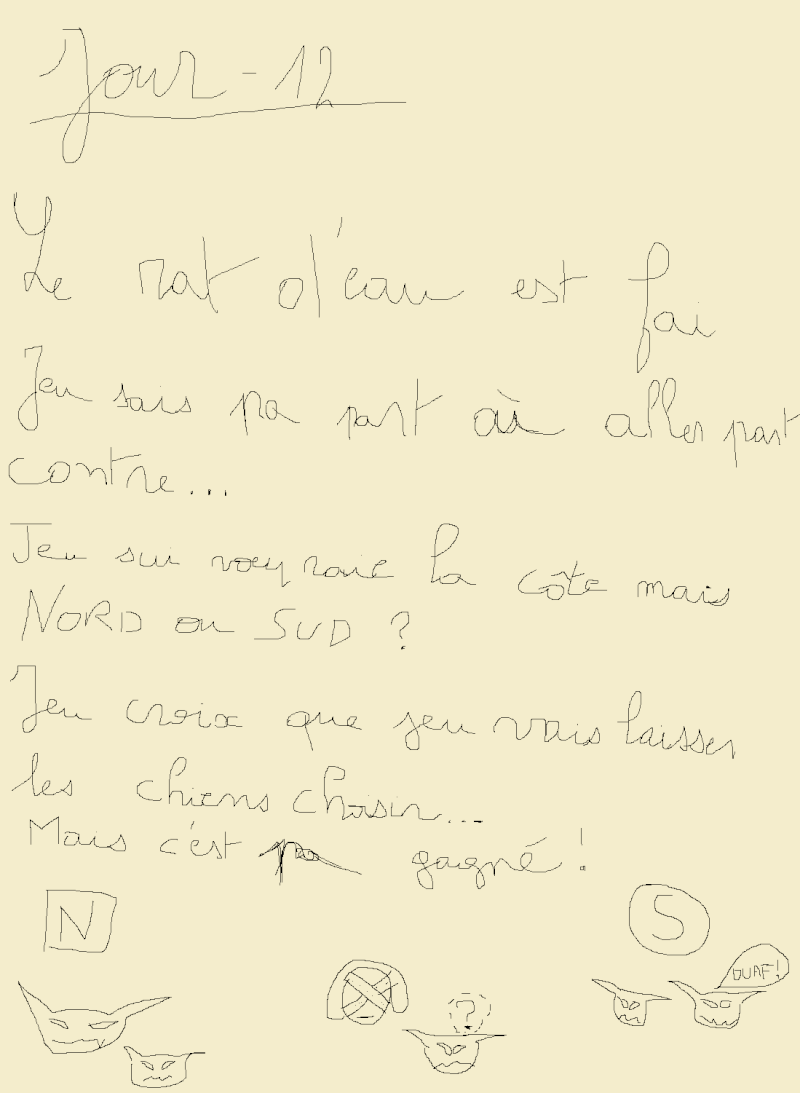 Jour-12
Le rat d'eau est fai
Jeu sais pa part où aller part
contre...
Jeu sui voeyraie la côte mais
NORD ou SUD ?
Jeu croix que jeu vais laisser
les chiens choisir...
Mais c'est pa gagné !
N
S
OUAF!
?